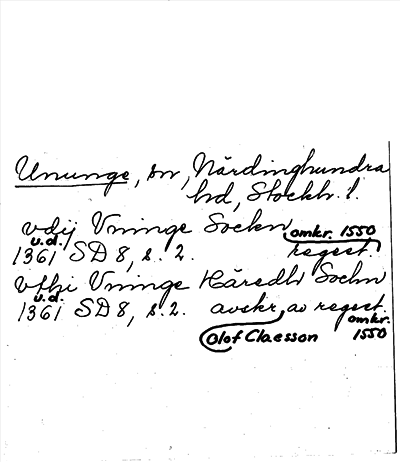 Ununge, sn, Närdinghundra
hd, Stockh. l.
vdij Vninge Sockn omkr. 1550
u.d.
1361 SD 8, s. 2. regest.
vthi Vninge Häredh Sochn
u.d.
1361 SD 8, s. 2. avskr. av regest.
omkr.
Olof Claesson 1550